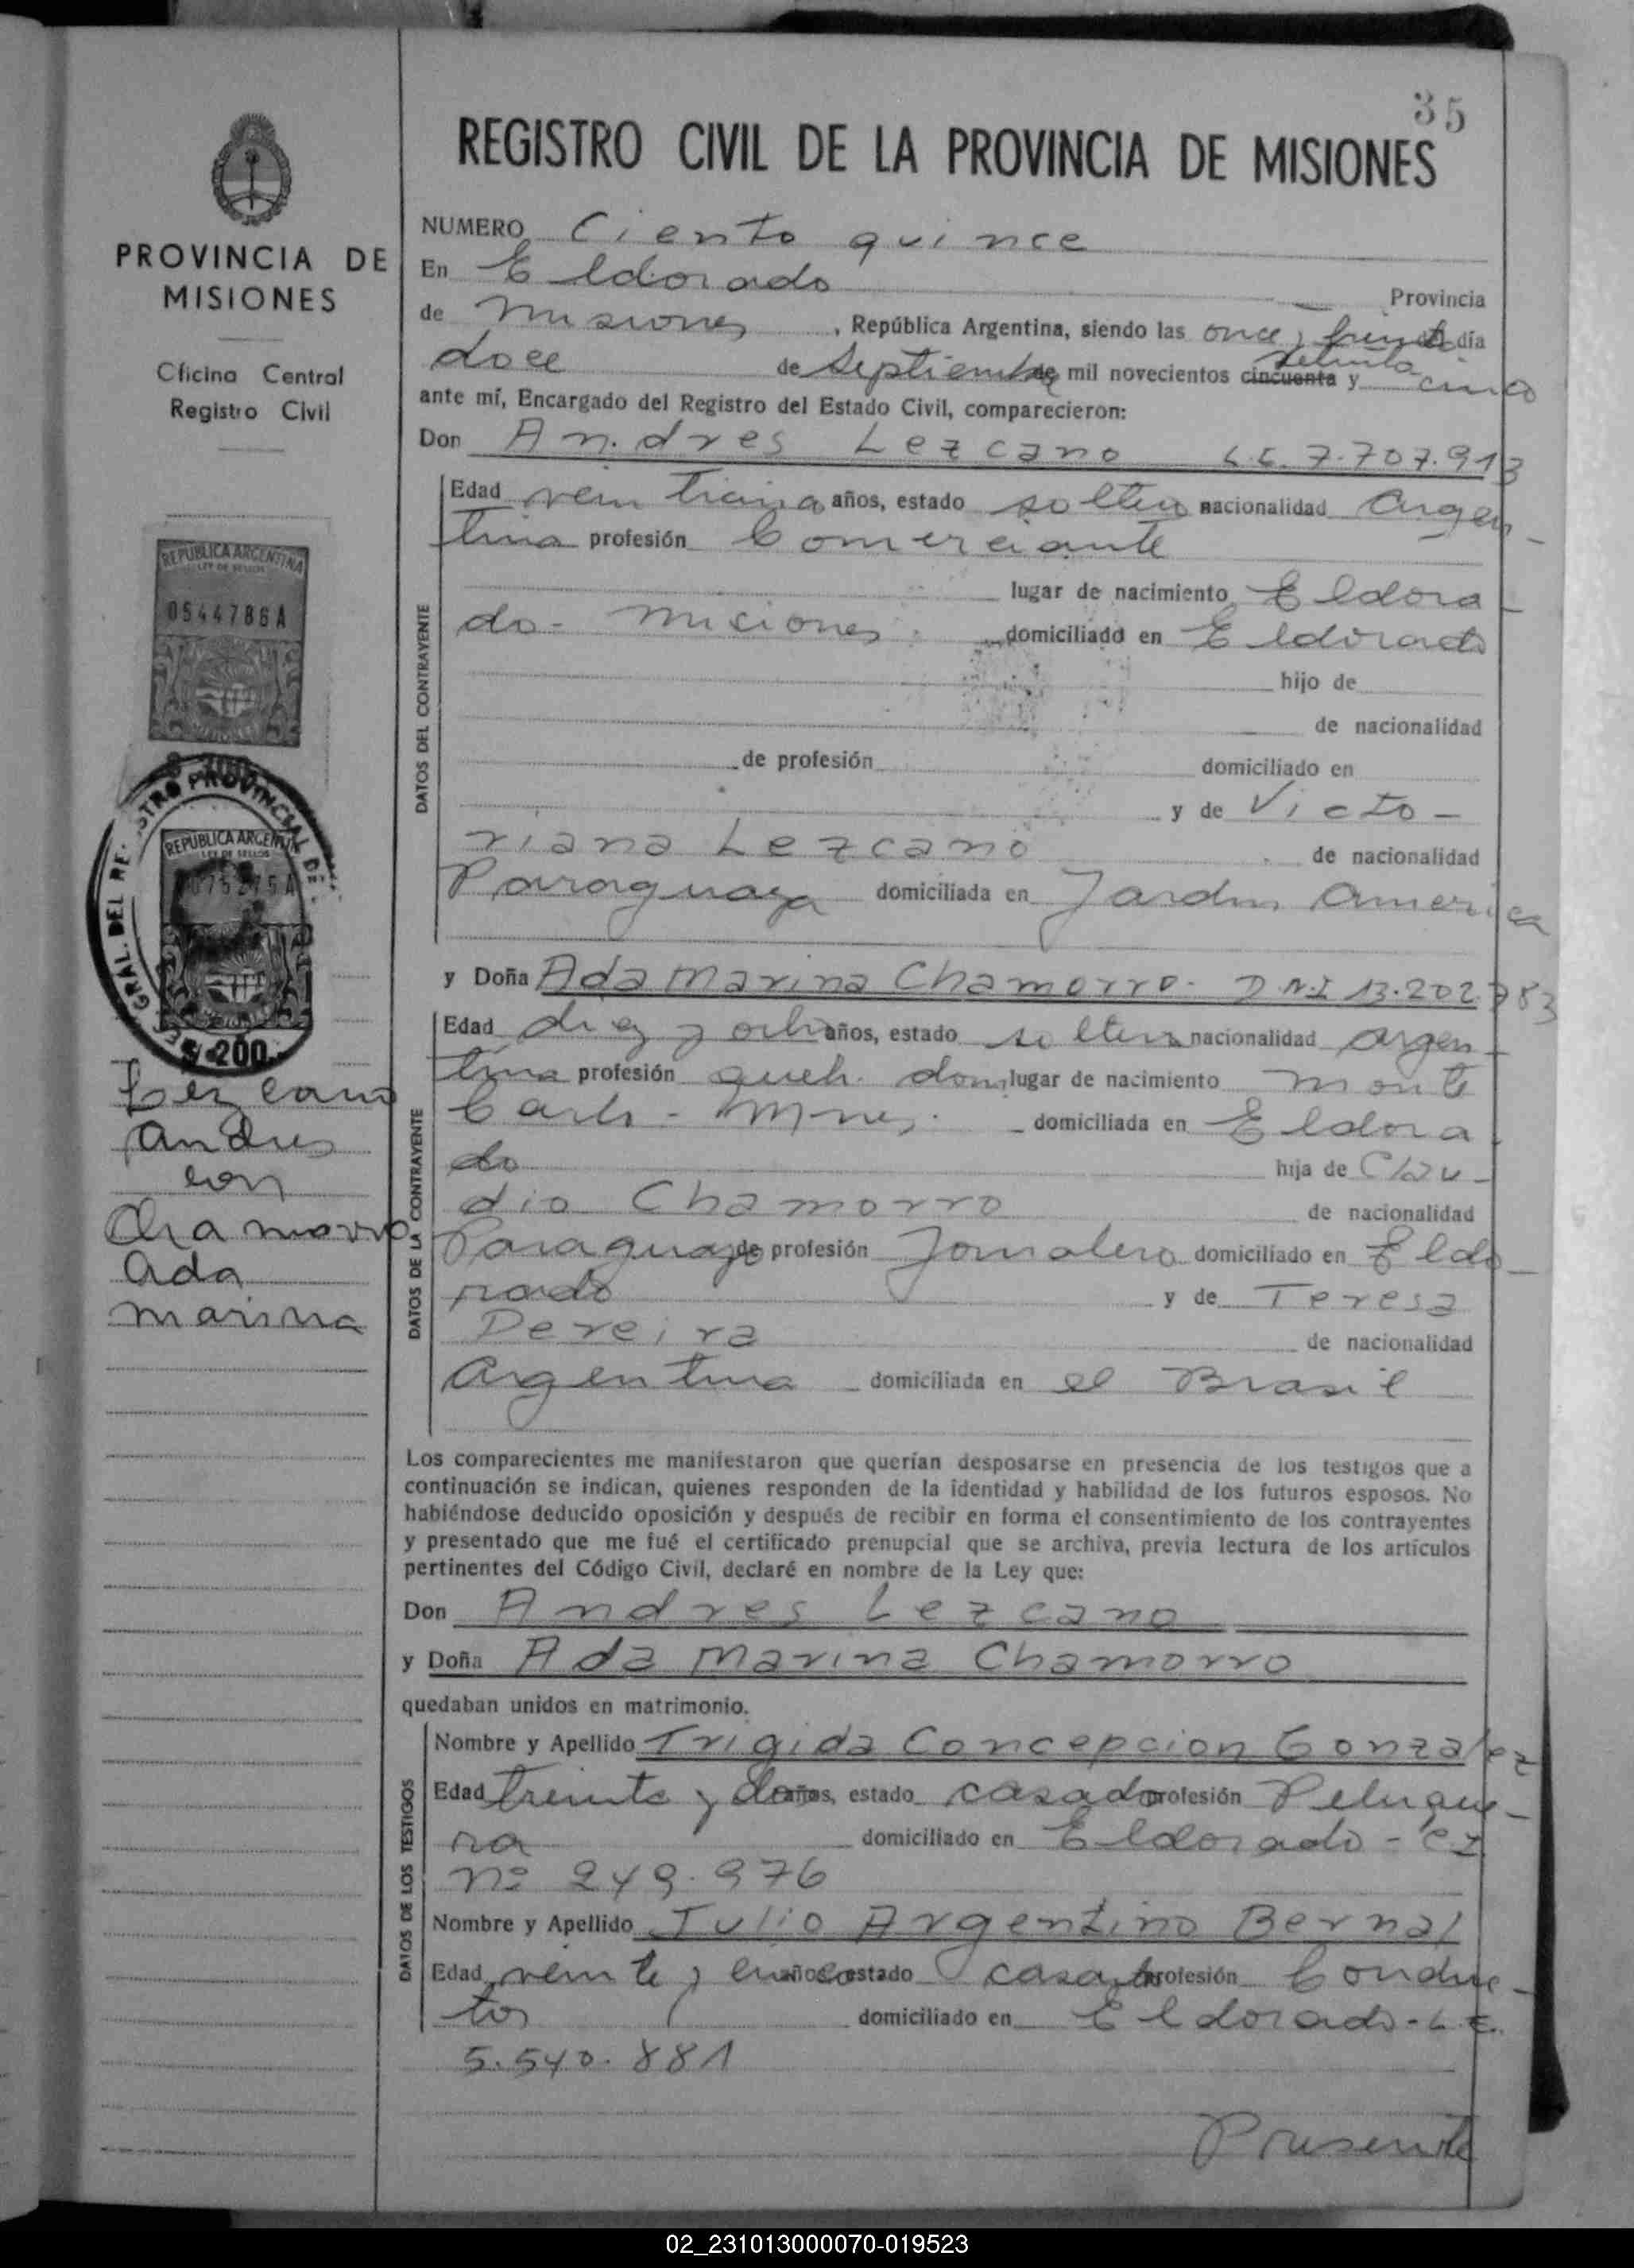 35
REGISTRO CIVIL DE LA PROVINCIA DE MISIONES
PROVINCIA DE
MISIONES
Oficina Central
Registro Civil
REPUBLICA ARGENTINA
LEY DE SELLOS
0544786A
REPUBLICA ARGENTINA
LEY DE SELLOS
$ 200.-
Lezcano
Andres
con
Chamorro
Ada
Marina
NUMERO Ciento quince
En Eldorado Provincia
de Misiones, República Argentina, siendo las once y treinta día
doce de Septiembre de mil novecientos cincuenta setenta y cinco
ante mí, Encargado del Registro del Estado Civil, comparecieron:
Don Andres Lezcano L.E. 7.707.913
DATOS DEL CONTRAYENTE
Edad años, estado soltero nacionalidad Argen-
tina profesión Comerciante
lugar de nacimiento Eldora-
do - Misiones. domiciliado en Eldorado
hijo de
de nacionalidad
de profesión domiciliado en
y de Victo-
riana Lezcano de nacionalidad
Paraguaya domiciliada en Jardin America
y Doña Ada Marina Chamorro. D.N.I 13.202.783
DATOS DE LA CONTRAYENTE
Edad diez y ocho años, estado soltera nacionalidad Argen-
tina profesión queh. dom. lugar de nacimiento Monte
Carlo - Mnes. domiciliada en Eldora-
do hija de Clau-
dio Chamorro de nacionalidad
Paraguayo de profesión Jornalero domiciliado en Eldo-
rado y de Teresa
Pereira de nacionalidad
Argentina domiciliada en el Brasil
Los comparecientes me manifestaron que querían desposarse en presencia de los testigos que a
continuación se indican, quienes responden de la identidad y habilidad de los futuros esposos. No
habiéndose deducido oposición y después de recibir en forma el consentimiento de los contrayentes
y presentado que me fué el certificado prenupcial que se archiva, previa lectura de los artículos
pertinentes del Código Civil, declaré en nombre de la Ley que:
Don Andres Lezcano
y Doña Ada Marina Chamorro
quedaban unidos en matrimonio.
DATOS DE LOS TESTIGOS
Nombre y Apellido Trigida Concepcion Gonzalez
Edad treinta y dos años, estado casado profesión Peluque-
ra domiciliado en Eldorado - CI.
Nº 249.976
Nombre y Apellido Julio Argentino Bernal
Edad veinte y años, estado casado profesión Conduc-
tor domiciliado en Eldorado - L.E.
5.540.881
Presente
02_231013000070-019523